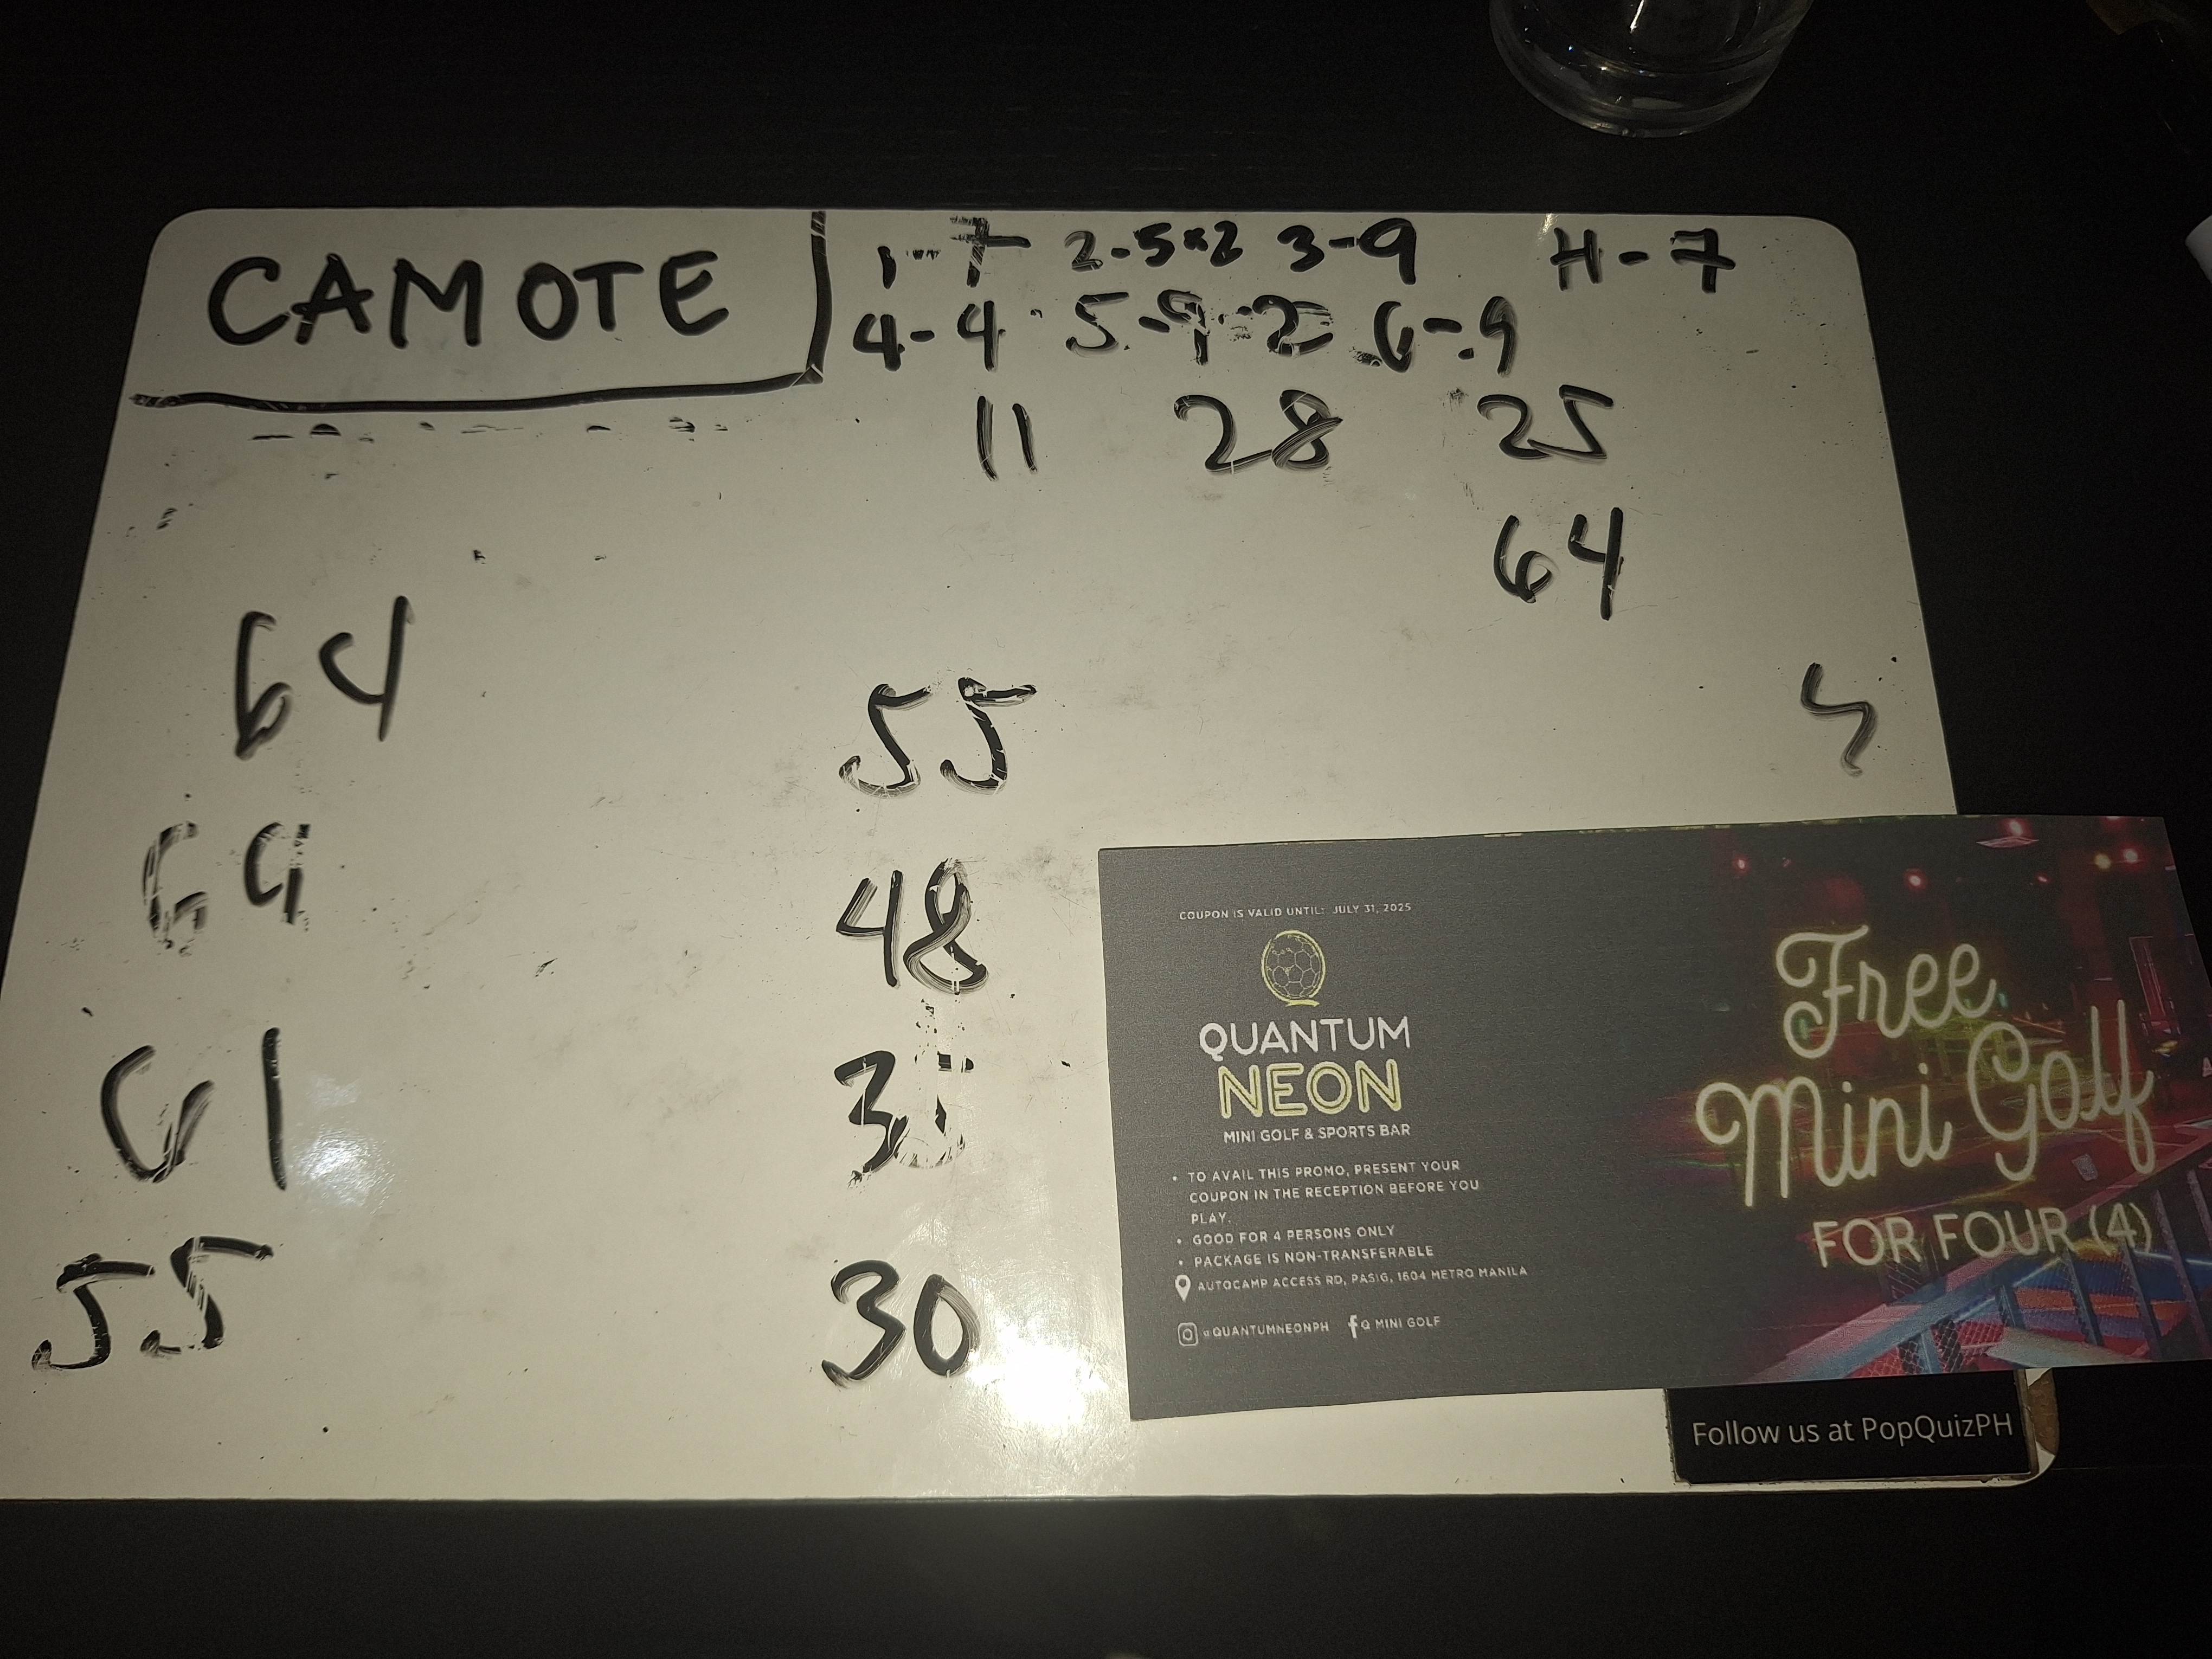 CAMOTE
1-7 2-5x2 3-9 H-7
4-4 5-9-2 6-9
11 28 25
64
64
55
69
48
61
55
30
COUPON IS VALID UNTIL: JULY 31, 2025
QUANTUM
NEON
MINI GOLF & SPORTS BAR
• TO AVAIL THIS PROMO, PRESENT YOUR
COUPON IN THE RECEPTION BEFORE YOU
PLAY.
• GOOD FOR 4 PERSONS ONLY
• PACKAGE IS NON-TRANSFERABLE
AUTOCAMP ACCESS RD, PASIG, 1604 METRO MANILA
@QUANTUMNEONPH Q MINI GOLF
Free
Mini Golf
FOR FOUR (4)
Follow us at PopQuizPH